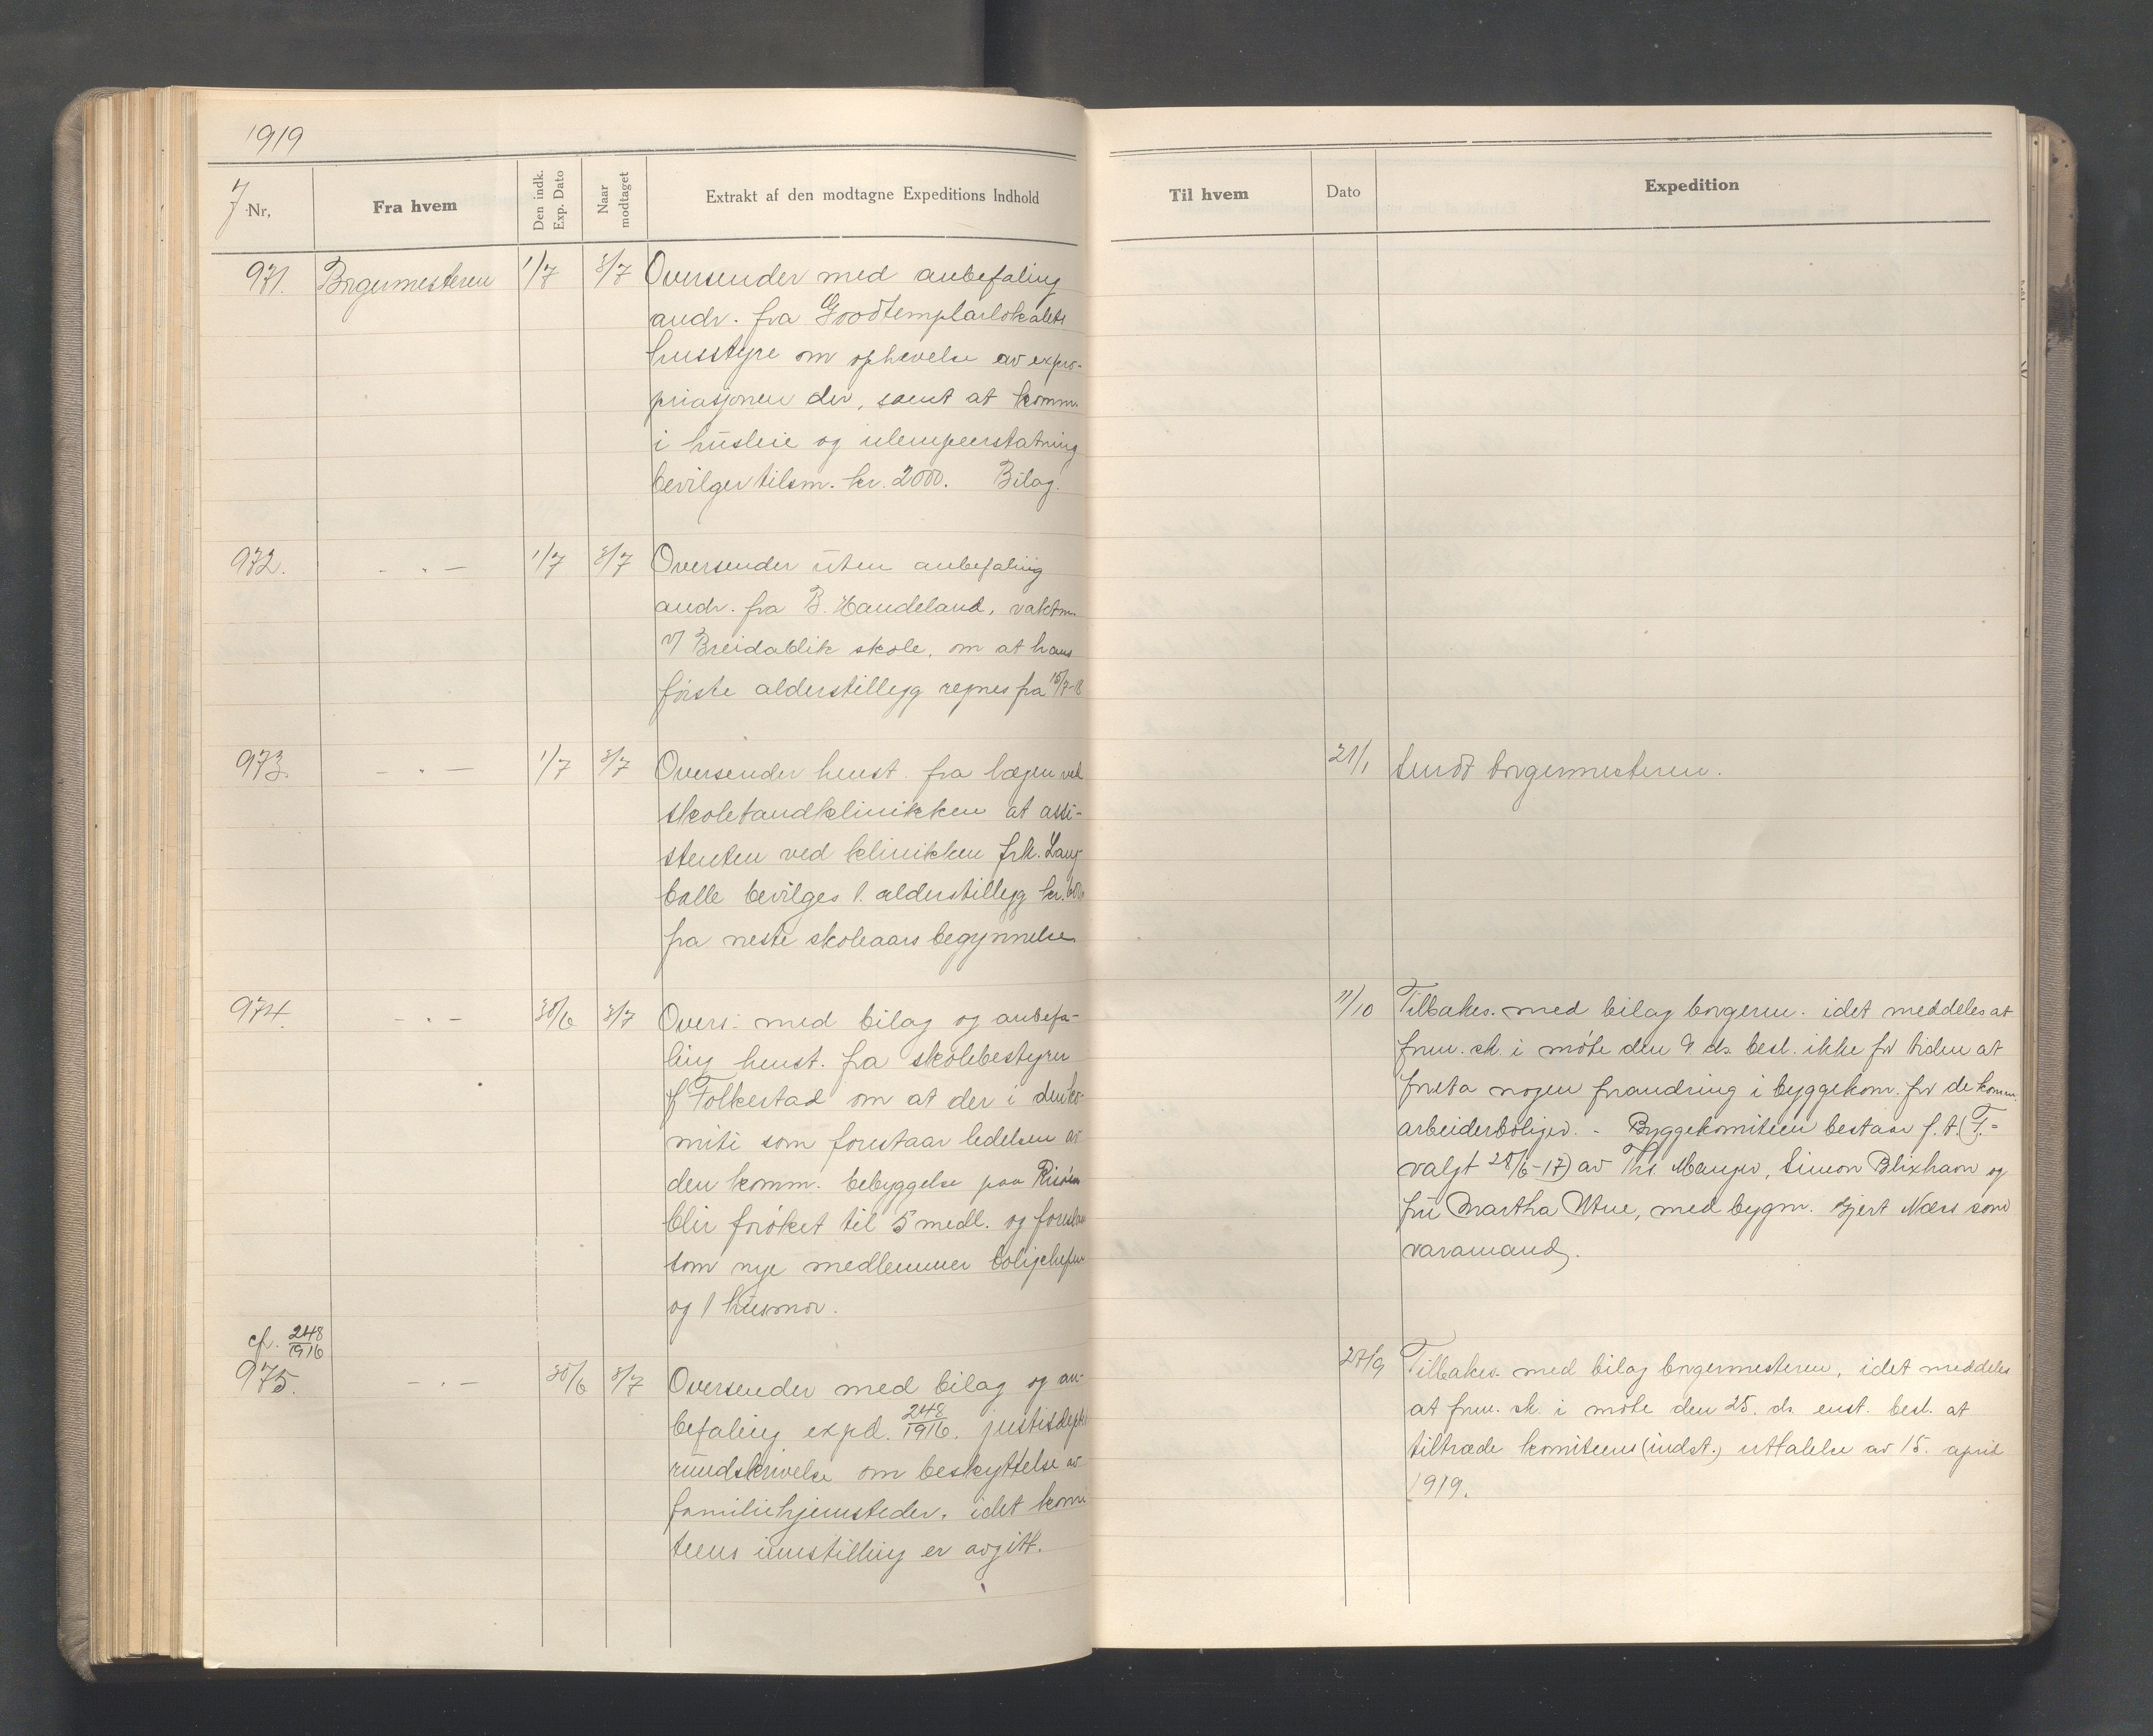 1919
J. Nr.
Fra hvem
Den indk. Exp. Dato
Naar modtaget
Extrakt af den modtagne Expeditions Indhold
Til hvem
Dato
Expedition
971. Borgermesteren 1/7 3/7 Oversender med anbefaling
andr. fra Goodtemplarlokalets
husstyre om ophevelse av expro-
priasjonen der, samt at komm.
i husleie og ulempeerstatning
bevilger tilsm. kr. 2000. Bilag.
972. - " - 1/7 3/7 Oversender uten anbefaling
andr. fra B. Haudeland, vaktm.
v/ Breidablik skole, om at hans
første alderstillegg regnes fra 15/7-18
973. - " - 1/7 3/7 Oversender henst. fra lægen ved
skoletandklinikken at assi-
stenten ved klinikken frk. Lang-
balle bevilges 1. alderstillegg kr.
fra neste skoleaars begynnelse.
21/1 Sendt borgermesteren.
974. - " - 30/6 3/7 Overs. med bilag og anbefa-
ling henst. fra skolebestyrer
Folkestad om at der i den ko-
mite som forestaar ledelsen av
den komm. bebyggelse paa Risøen
blir forøket til 5 medl. og foreslaar
som nye medlemmer boligchefen
og 1 husmor.
11/10 Tilbakes. med bilag borgerm. idet meddeles at
form.sk. i møte den 9. ds. besl. ikke for tiden at
foreta nogen forandring i byggekom. for de komm.
arbeiderboliger. - Byggekomiteen bestaar f.t. (F.=
valgt 28/6-17) av Ths. Mauger, Simon Blixhavn og
fru Martha Utne, med bygm. Gjert Næss som
varamand.
cf. 248/1916
975. - " - 30/6 3/7 Oversender med bilag og an-
befaling expd. 248/1916. justisdept.
rundskrivelse om beskyttelse av
familiehjemsteder, idet komi-
teens innstilling er avgitt.
27/9 Tilbakes. med bilag borgermesteren, idet meddeles
at form.sk. i møte den 25. ds. enst. besl. at
tiltræde komiteens (indst.) uttalelse av 15. april
1919.